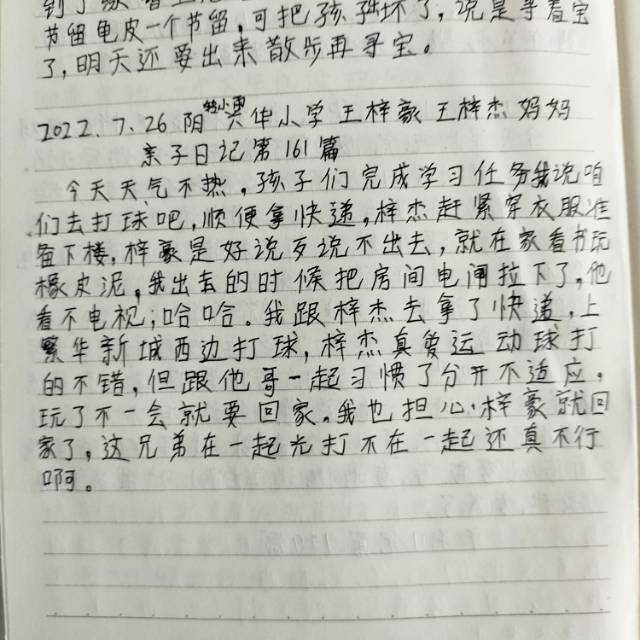 节留龟皮一个节留,可把孩子强坏了,说是寻着宝
了,明天还要出来散步再寻宝。
2022.7.26 阴转小雨 兴华小学 王梓豪 王梓杰妈妈
亲子日记第161篇
今天天气不热,孩子们完成学习任务我说咱
们去打球吧,顺便拿快递,梓杰赶紧穿衣服准
备下楼,梓豪是好说歹说不出去,就在家看书玩
橡皮泥,我出去的时候把房间电闸拉下了,他
看不电视;哈哈。我跟梓杰去拿了快递,上
繁华新城西边打球,梓杰真爱运动球打
的不错,但跟他哥一起习惯了分开不适应,
玩了不一会就要回家。我也担心梓豪就回
家了,这兄弟在一起光打不在一起还真不行
啊。